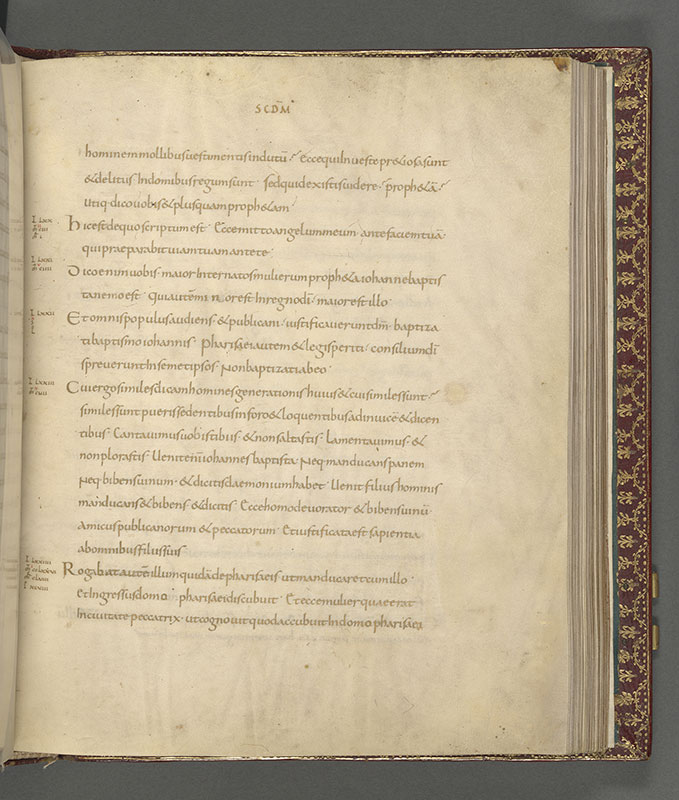 SCDM̄
hominem mollibus vestimentis indutū· Ecce qui In veste preciosa sunt
& delitiis In domibus regum sunt· Sed quid existis videre· proph&ā·
Utiq· dico vobis & plus quam proph&am·
hic est de quo scriptum est· Ecce mitto angelum meum· ante faciem tuā
qui praeparabit viam tuam ante te·
Dico enim vobis· maior Inter natos mulierum proph&a iohanne baptis
ta nemo est· Qui autē minor est In regno dī· maior est illo·
Et omnis populus audiens & publicani· iustificaverunt dm̄· baptiza
ti baptismo iohannis· Pharisaei autem & legis periti· consilium dī
spreverunt In semetipsos· Non baptizati ab eo·
Cui ergo similes dicam homines generationis huius & cui similes sunt·
similes sunt pueris sedentibus in foro & loquentibus ad invicē & dicen
tibus· Cantavimus vobis tibiis & non saltastis· Lamentavimus· &
non plorastis· Venit enī iohannes baptista· Neq· manducans panem
Neq· bibens vinum· & dicitis daemonium hab&· Venit filius hominis
manducans & bibens & dicitis· Ecce homo devorator & bibens vinū·
Amicus publicanorum & peccatorum· Et iustificata est sapientia
ab omnibus filiis suis·
Rogabat autē illum quidā de pharisaeis ut manducar& cum illo·
Et Ingressus domo· pharisaei discubuit· Et ecce mulier quae erat
In civitate peccatrix· ut cognovit quod accubuit In domo pharisaei